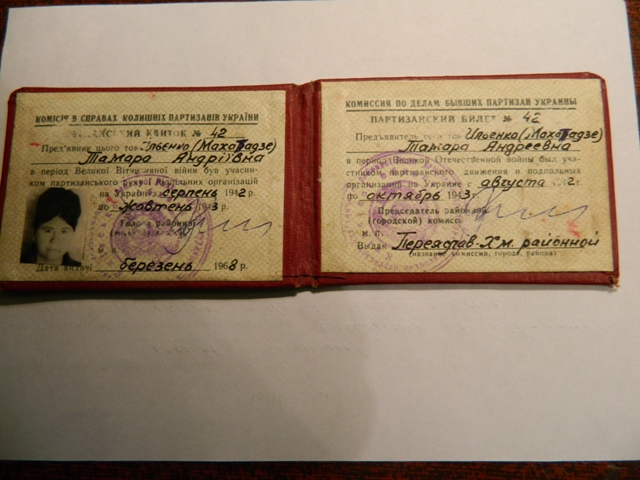 КОМІСІЯ В СПРАВАХ КОЛИШНІХ ПАРТИЗАНІВ УКРАЇНИ
КВИТОК № 42
Пред'явник цього тов. Ільєнко (Махатадзе)
Тамара Андріївна
в період Великої Вітчизняної війни був учасни-
ком партизанського руху і підпільних організацій
на Україні з серпень 1942 р.
по жовтень 1943 р.
Голова районної
Дата видачі березень 1968 р.
КОМИССИЯ ПО ДЕЛАМ БЫВШИХ ПАРТИЗАН УКРАИНЫ
ПАРТИЗАНСКИЙ БИЛЕТ № 42
Предъявитель сего тов. Ильенко (Махатадзе)
Тамара Андреевна
в период Великой Отечественной войны был уча-
стником партизанского движения и подпольных
организаций на Украине с августа 1942 г.
по октябрь 1943 г.
Председатель районной
(городской) комисс
М. П.
Выдан Переяслав-Хм. районной
(название комиссии, города, района)